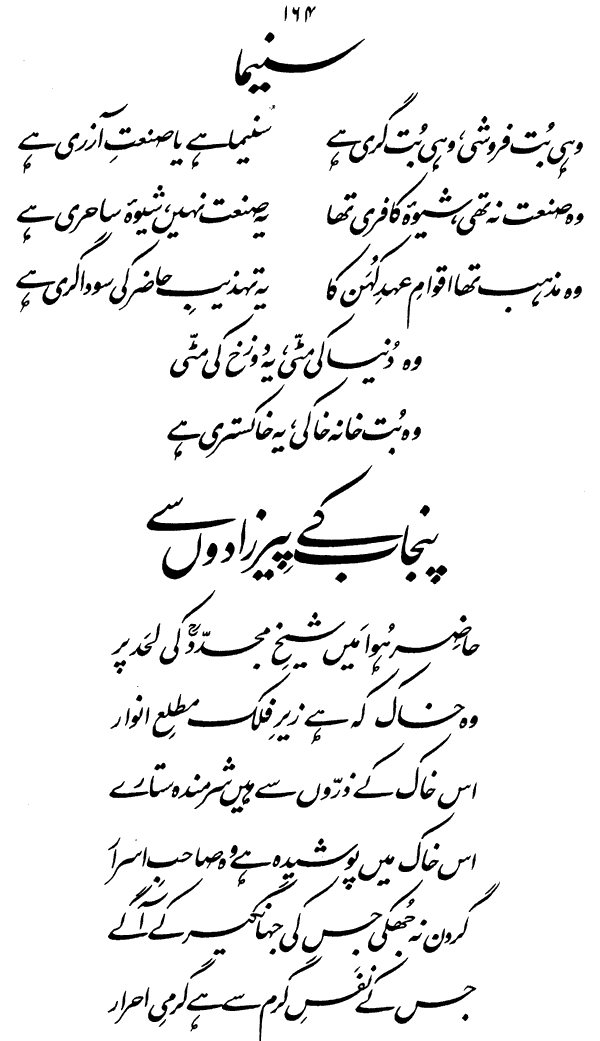 ۱۶۴
سنیما
وہی بُت فروشی، وہی بُت گری ہے سنیما ہے یا صنعتِ آزری ہے
وہ صنعت نہ تھی، شیوۂ کافری تھا یہ صنعت نہیں، شیوۂ ساحری ہے
وہ مذہب تھا اقوامِ عہدِ کُہَن کا یہ تہذیبِ حاضر کی سوداگری ہے
وہ دُنیا کی مٹّی، یہ دوزخ کی مٹّی
وہ بُت خانہ خاکی، یہ خاکستری ہے
پنجاب کے پِیرزادوں سے
حاضِر ہُوا مَیں شیخِ مجدّدؒ کی لحَد پر
وہ خاک کہ ہے زیرِ فلک مطلعِ انوار
اس خاک کے ذرّوں سے ہیں شرمندہ ستارے
اس خاک میں پوشیدہ ہے وہ صاحبِ اسرار
گردن نہ جُھکی جس کی جہانگیر کے آگے
جس کے نفَسِ گرم سے ہے گرمیِ احرار